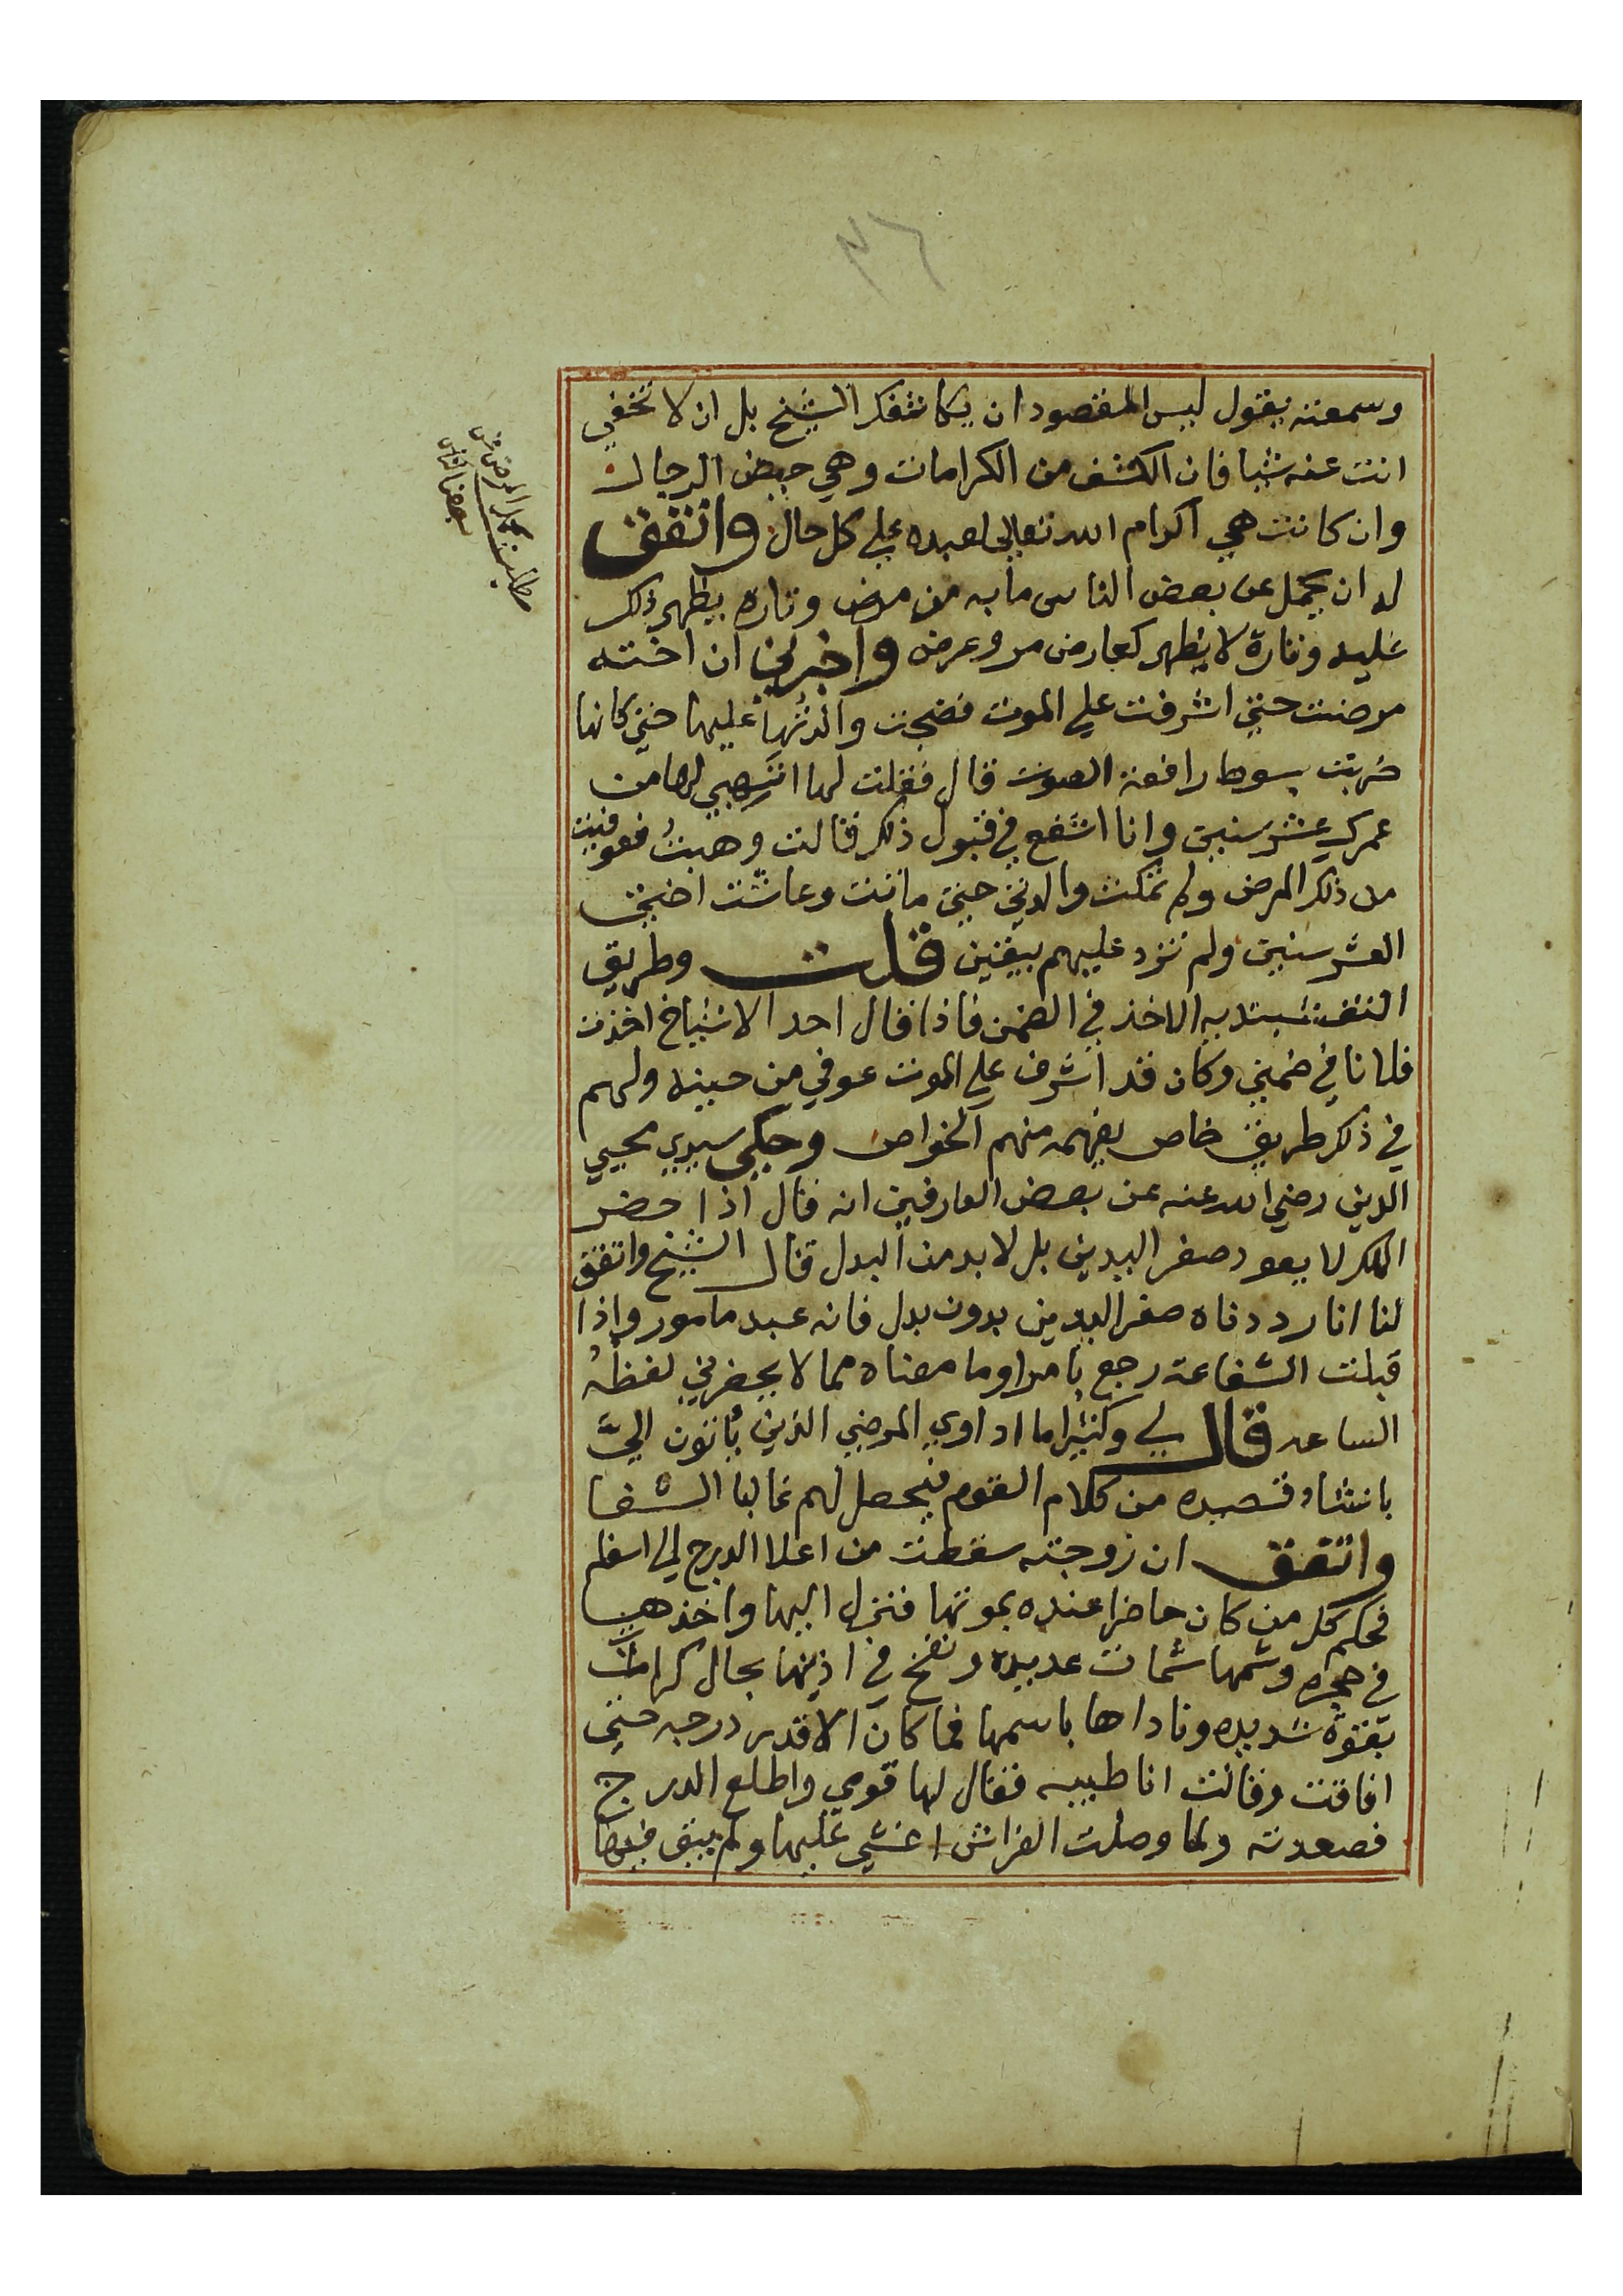 ٣٦
وسمعته يقول ليس المقصود ان يكاشفك الشيخ بل ان لا تخفي
انت عنه شيا فان الكشف من الكرامات وهي حيض الرجال
وان كانت هي اكرام الله تعالى لعبده علي كل حال واتفق
له ان يحمل عن بعض الناس ما به من مرض وتاره يظهر ذلك
عليه وتارة لا يظهر كعارض مر وعرض واخبرني ان اخته
مرضت حتي اشرفت علي الموت فضجت والدتُها عليها حتي كانها
ضربت بسوط رافعة الصوت قال فقلت لها اتهبي لها من
عمرك عشر سنين وانا اشفع في قبول ذلك قالت وهبتُ فعوفيت
من ذلك المرض ولم تمكث والدتي حتي ماتت وعاشت اختي
العشر سنين ولم تزد عليهم بيقين قلت وطريق
الاخذ في الضمن فاذا قال احد الاشياخ اخذت
فلانا في ضمني وكان قد اشرف علي الموت عوفي من حينه ولهم
في ذلك طريق خاص يفهمه منهم الخواص وحكي سيدي محيي
الدين رضي الله عنه عن بعض العارفين انه قال اذا حضر
الملك لا يعود صفر اليدين بل لا بد من البدل قال الشيخ واتفق
لنا انا رددناه صفر اليدين بدون بدل فانه عبد مامور واذا
قبلت الشفاعة رجع بامر او ما معناه مما لا يحضرني لفظهُ
الساعه قال لي وكثيرا ما اداوي المرضي الذين يأتون اليَّ
بانشاد قصيده من كلام القوم فيحصل لهم غالبا الشفا
واتفق ان زوجته سقطت من اعلا الدرج الي اسفله
فحكم كل من كان حاضرا عنده بموتها فنزل اليها واخذها
في حجره وشمها شمات عديده ونفخ في اذنها بحال كرامات
بقوة شديده وناداها باسمها فما كان الا قدر درجه حتي
افاقت وقالت انا طيبه فقال لها قومي واطلع الدرج
فصعدته ولما وصلت الفراش اغشي عليها ولم يبق فيها
مطلب
بعض الناس